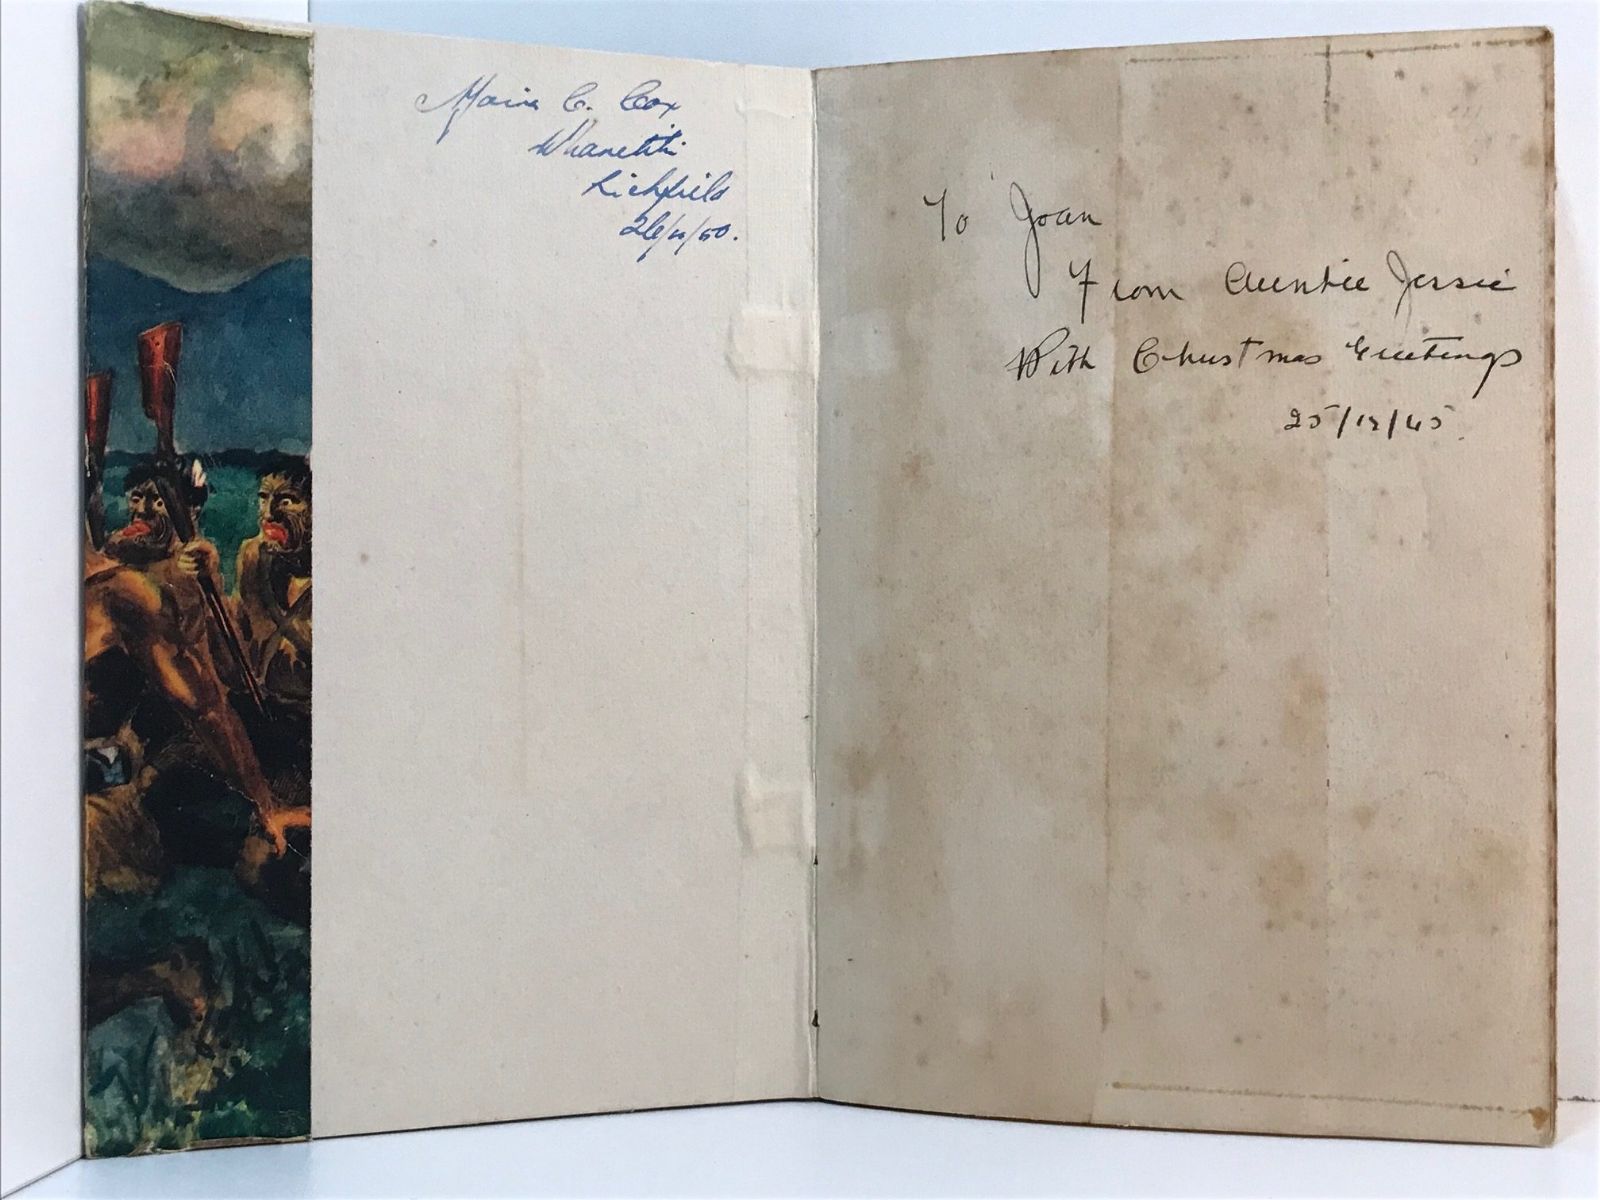 Moira C. Cox
Whanetiti
Lichfield
26/11/50.
To Joan
From Auntie Jessie
With Christmas Greetings
25/12/45.